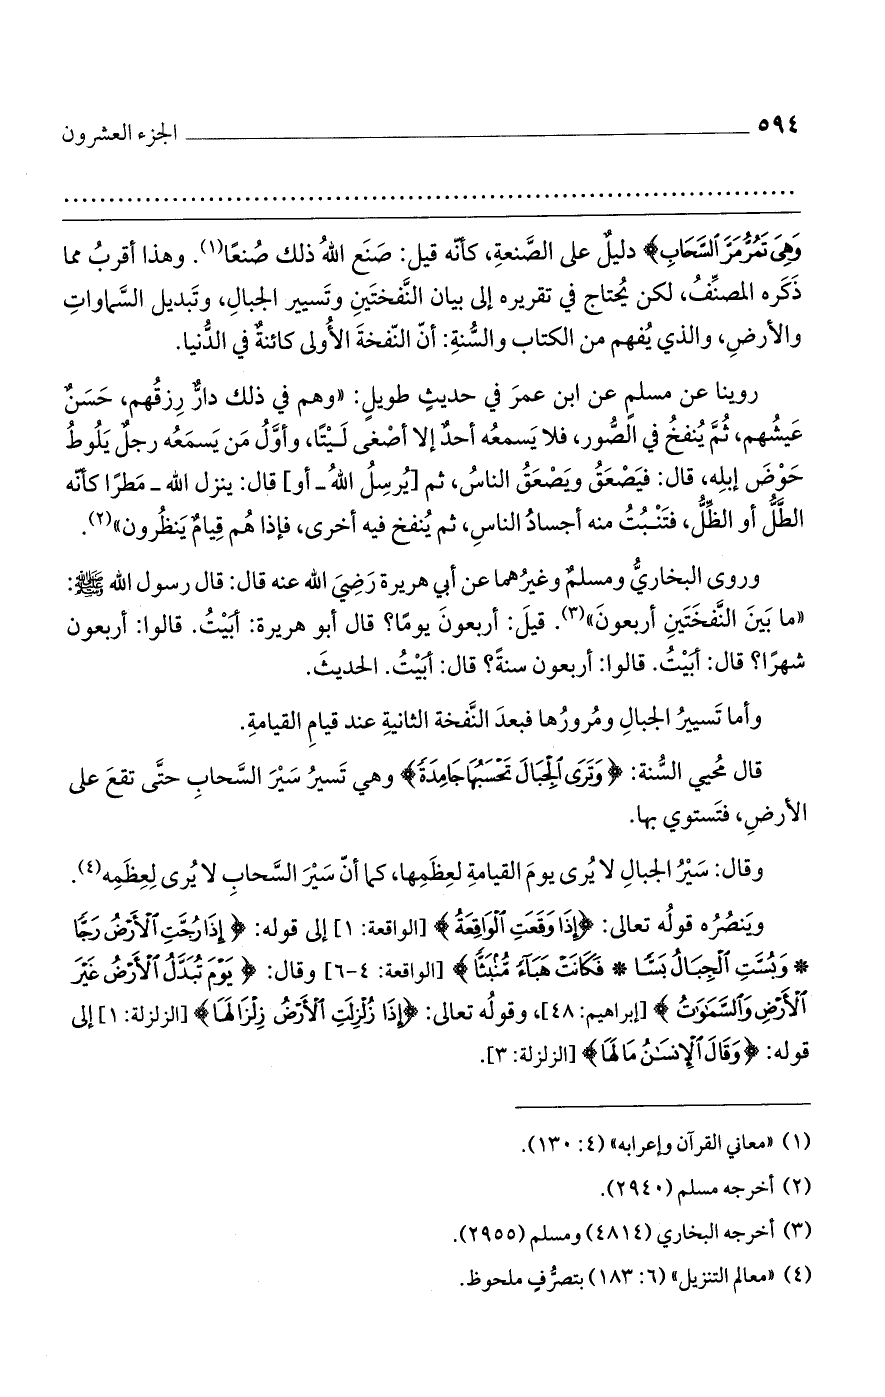 ٥٩٤ الجزء العشرون
وَهِىَ تَمُرُّ مَرَّ ٱلسَّحَابِ﴾ دليلٌ على الصَّنعةِ، كأنّه قيل: صَنَع اللهُ ذلك صُنعًا(١). وهذا أقربُ مما
ذَكَره المصنِّفُ، لكن يُحتاج في تقريره إلى بيان النَّفختَينِ وتَسيير الجبالِ، وتَبديل السَّماواتِ
والأرضِ، والذي يُفهم من الكتاب والسُّنة: أنّ النّفخةَ الأُولى كائنةٌ في الدُّنيا.
روينا عن مسلمٍ عن ابن عمرَ في حديثٍ طويلٍ: «وهم في ذلك دارٌّ رِزقُهم، حَسَنٌ
عَيشُهم، ثُمَّ يُنفخُ في الصُّور، فلا يَسمعُه أحدٌ إلا أصْغى لَـيْتًا، وأوَّلُ مَن يَسمَعُه رجلٌ يَلُوطُ
حَوْضَ إبلِه، قال: فيَصْعَقُ ويَصْعَقُ الناسُ، ثم [يُرسِلُ اللهُ ـ أو] قال: ينزل الله ـ مَطرًا كأنّه
الطَّلُّ أو الظِّلُّ، فتَنْبُتُ منه أجسادُ الناسِ، ثم يُنفخ فيه أخرى، فإذا هُم قِيامٌ يَنظُرون»(٢).
وروى البخاريُّ ومسلمٌ وغيرُهما عن أبي هريرة رَضِيَ الله عنه قال: قال رسول الله ﷺ:
«ما بَينَ النَّفخَتَينِ أربعونَ»(٣). قيلَ: أربعونَ يومًا؟ قال أبو هريرة: أبَيْتُ. قالوا: أربعون
شهرًا؟ قال: أبَيْتُ. قالوا: أربعون سنةً؟ قال: أبَيْتُ. الحديثَ.
وأما تَسييرُ الجبالِ ومُرورُها فبعدَ النَّفخة الثانيةِ عند قيامِ القيامةِ.
قال مُحيي السُّنة: ﴿وَتَرَى ٱلْجِبَالَ تَحْسَبُهَا جَامِدَةً﴾ وهي تَسيرُ سَيْرَ السَّحابِ حتَّى تقعَ على
الأرضِ، فتَستوي بها.
وقال: سَيْرُ الجبالِ لا يُرى يومَ القيامةِ لعِظَمِها، كما أنّ سَيْرَ السَّحابِ لا يُرى لِعِظَمِه(٤).
ويَنصُرُه قولُه تعالى: ﴿إِذَا وَقَعَتِ ٱلْوَاقِعَةُ﴾ [الواقعة: ١] إلى قوله: ﴿إِذَا رُجَّتِ ٱلْأَرْضُ رَجًّا
* وَبُسَّتِ ٱلْجِبَالُ بَسًّا * فَكَانَتْ هَبَآءً مُّنۢبَثًّا﴾ [الواقعة: ٤-٦] وقال: ﴿يَوْمَ تُبَدَّلُ ٱلْأَرْضُ غَيْرَ
ٱلْأَرْضِ وَٱلسَّمَٰوَٰتُ﴾ [إبراهيم: ٤٨]، وقولُه تعالى: ﴿إِذَا زُلْزِلَتِ ٱلْأَرْضُ زِلْزَالَهَا﴾ [الزلزلة: ١] إلى
قوله: ﴿وَقَالَ ٱلْإِنسَٰنُ مَا لَهَا﴾ [الزلزلة: ٣].
(١) «معاني القرآن وإعرابه» (٤: ١٣٠).
(٢) أخرجه مسلم (٢٩٤٠).
(٣) أخرجه البخاري (٤٨١٤) ومسلم (٢٩٥٥).
(٤) «معالم التنزيل» (٦: ١٨٣) بتصرُّفٍ ملحوظ.